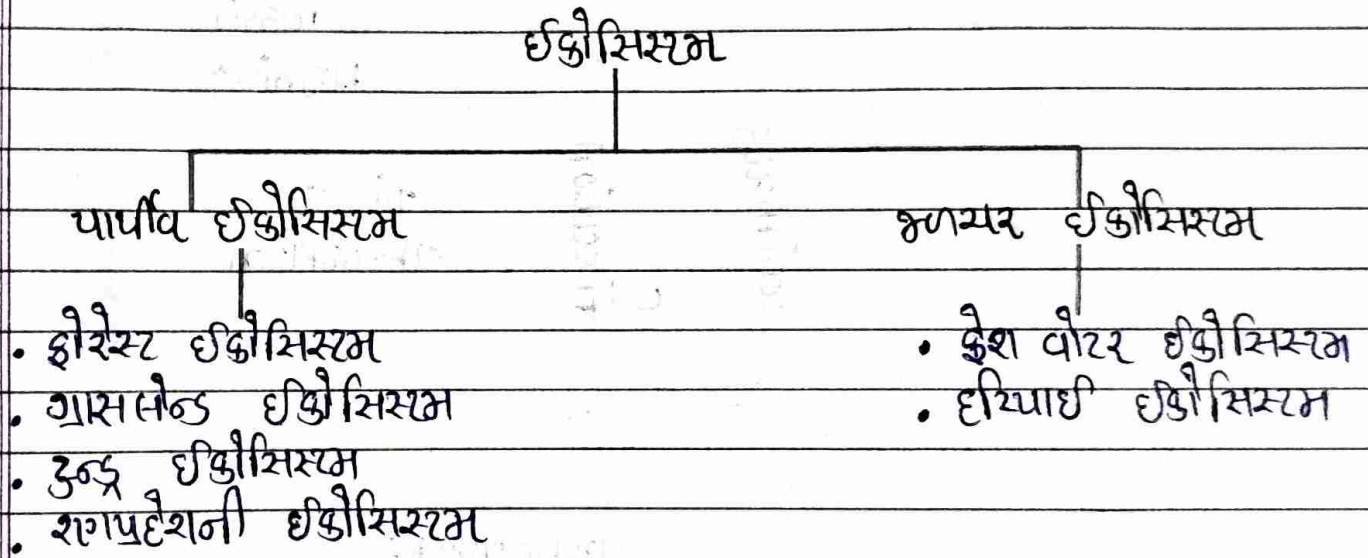 ઈકોસિસ્ટમ
પાર્થીવ ઈકોસિસ્ટમ
જળચર ઈકોસિસ્ટમ
• ફોરેસ્ટ ઈકોસિસ્ટમ
• ગ્રાસલેન્ડ ઈકોસિસ્ટમ
• ટુન્ડ્ર ઈકોસિસ્ટમ
• રણપ્રદેશની ઈકોસિસ્ટમ
• ફ્રેશ વોટર ઈકોસિસ્ટમ
• દરિયાઈ ઈકોસિસ્ટમ